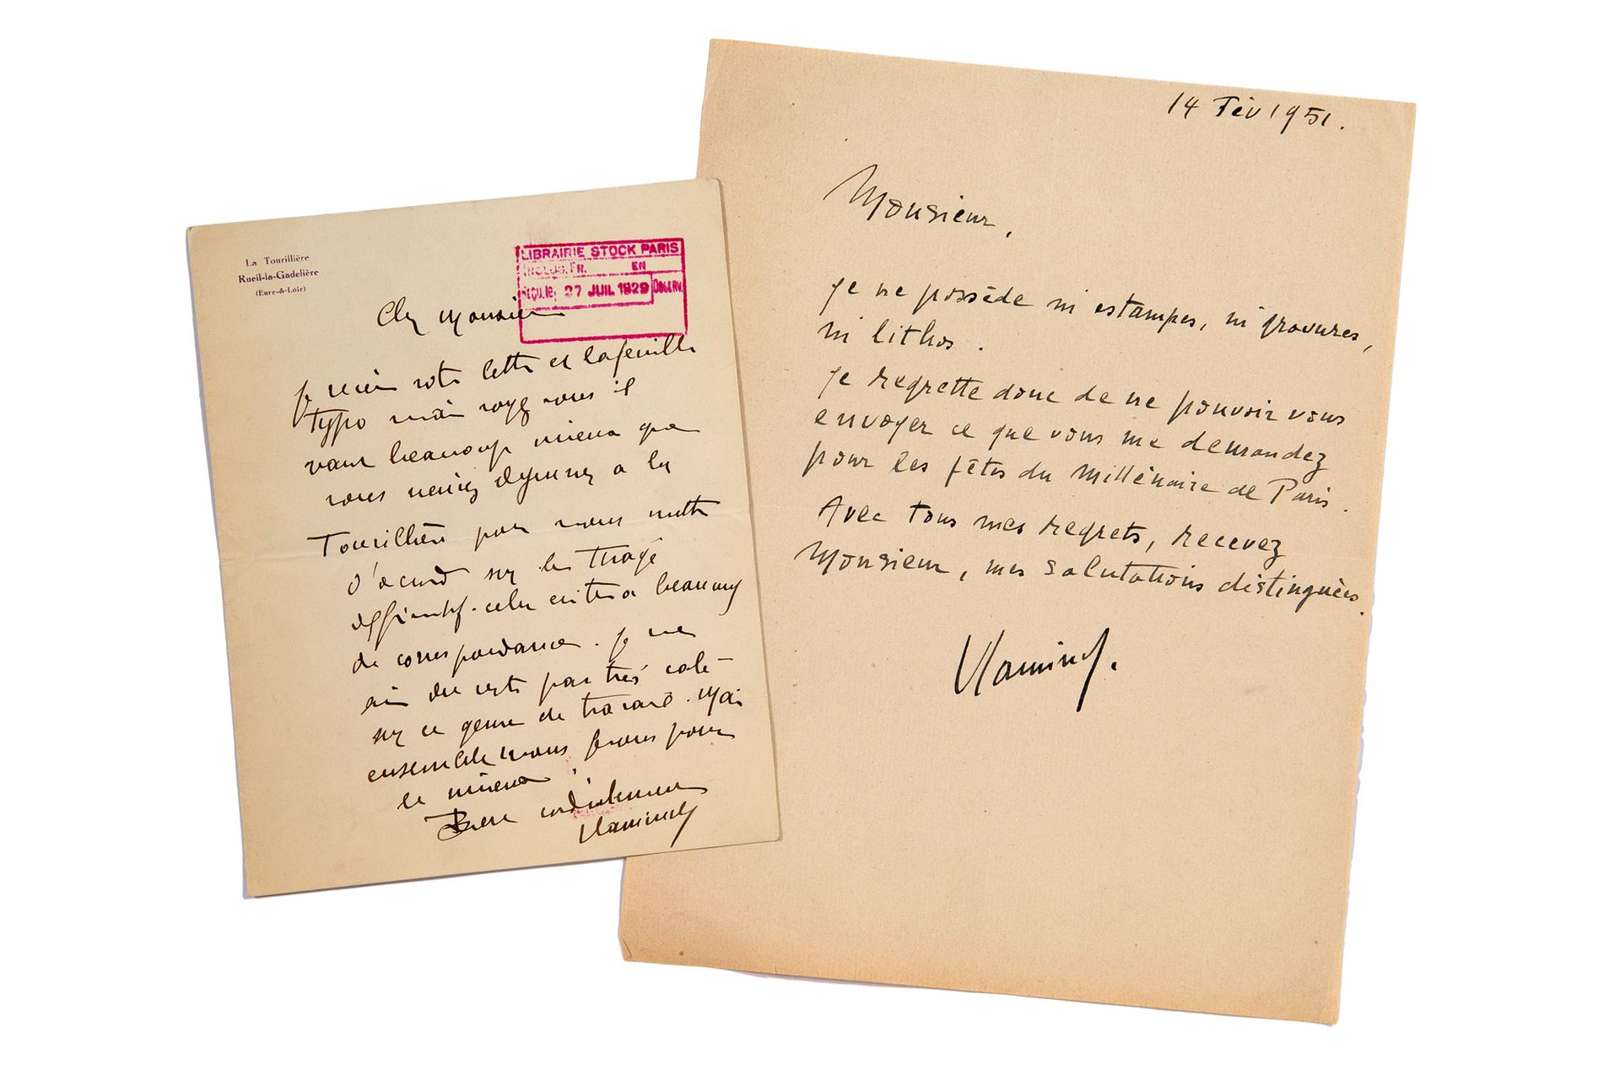 La Tourillière
Rueil-la-Gadelière
(Eure-&-Loir)
LIBRAIRIE STOCK PARIS
EN
Reçu le: 27 JUIL 1929
Cher Monsieur
Je votre lettre et la feuille
typo mais voyez vous il
vaut beaucoup mieux que
vous veniez déjeuner a la
Tourillière pour nous mettre
d'accord sur le tirage
cela evitera beaucoup
de correspondance. Je ne
suis du reste pas très calé
sur ce genre de travail. Mais
ensemble nous ferons pour
le mieux.
Bien cordialement
Vlaminck
14 Fév 1951.
Monsieur,
Je ne possède ni estampes, ni gravures,
ni lithos.
Je regrette donc de ne pouvoir vous
envoyer ce que vous me demandez
pour les fêtes du Millénaire de Paris.
Avec tous mes regrets, recevez
Monsieur, mes salutations distinguées.
Vlaminck.